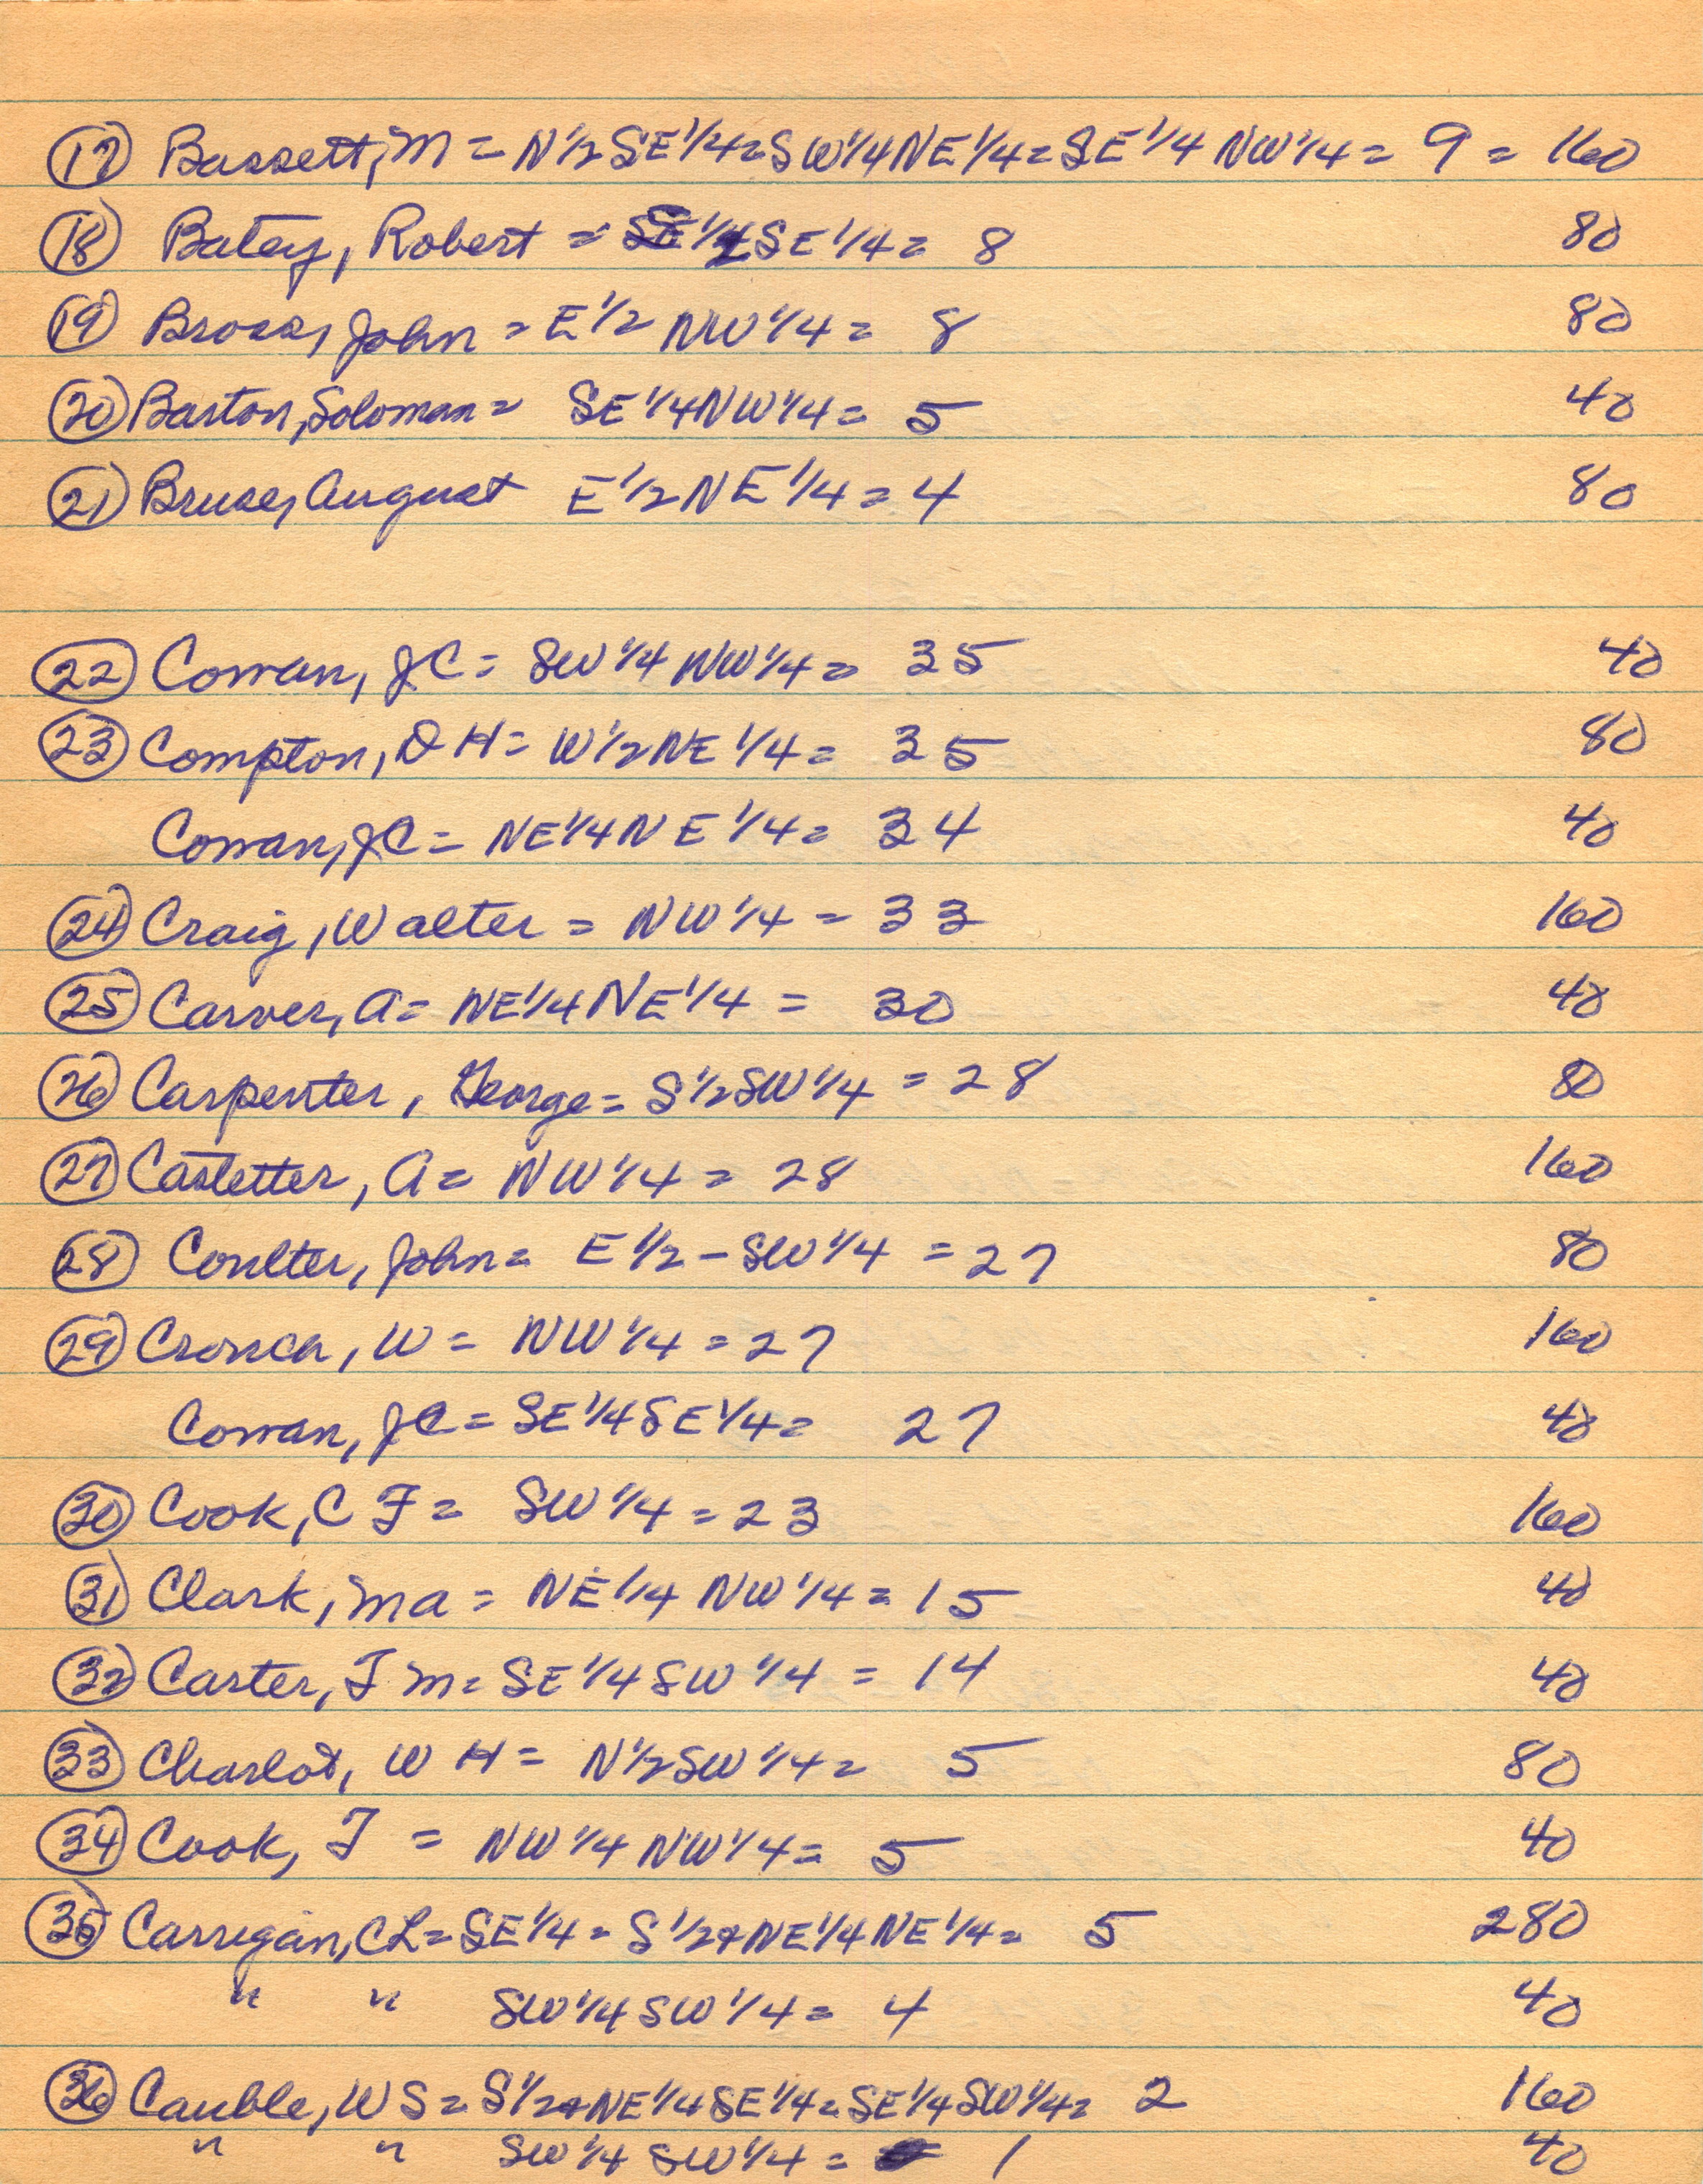 (17) Bassett, M = N½SE¼=SW¼NE¼=SE¼ NW¼ = 9 = 160
(18) Batey, Robert = S½SE¼ = 8 80
(19) Bross, John = E½ NW¼ = 8 80
(20) Barton, Soloman = SE¼NW¼ = 5 40
(21) Bruse, August E½NE¼ = 4 80
(22) Cowan, JC = SW¼ NW¼ = 35 40
(23) Compton, DH = W½NE¼ = 35 80
Cowan, JC = NE¼NE¼ = 34 40
(24) Craig, Walter = NW¼ = 33 160
(25) Carver, A = NE¼NE¼ = 30 40
(26) Carpenter, George = S½SW¼ = 28 80
(27) Castetter, A = NW¼ = 28 160
(28) Coulter, John = E½ - SW¼ = 27 80
(29) W = NW¼ = 27 160
Cowan, JC = SE¼SE¼ = 27 40
(30) Cook, C F = SW¼ = 23 160
(31) Clark, Ma = NE¼ NW¼ = 15 40
(32) Carter, F M = SE¼ SW¼ = 14 40
(33) Charlot, W H = N½SW¼ = 5 80
(34) Cook, F = NW¼ NW¼ = 5 40
(35) Carrigan, CL = SE¼ = S½+NE¼NE¼ = 5 280
" " SW¼ SW¼ = 4 40
(36) Cauble, WS = S½+NE¼SE¼=SE¼SW¼ = 2 160
" " SW¼ SW¼ = 1 40